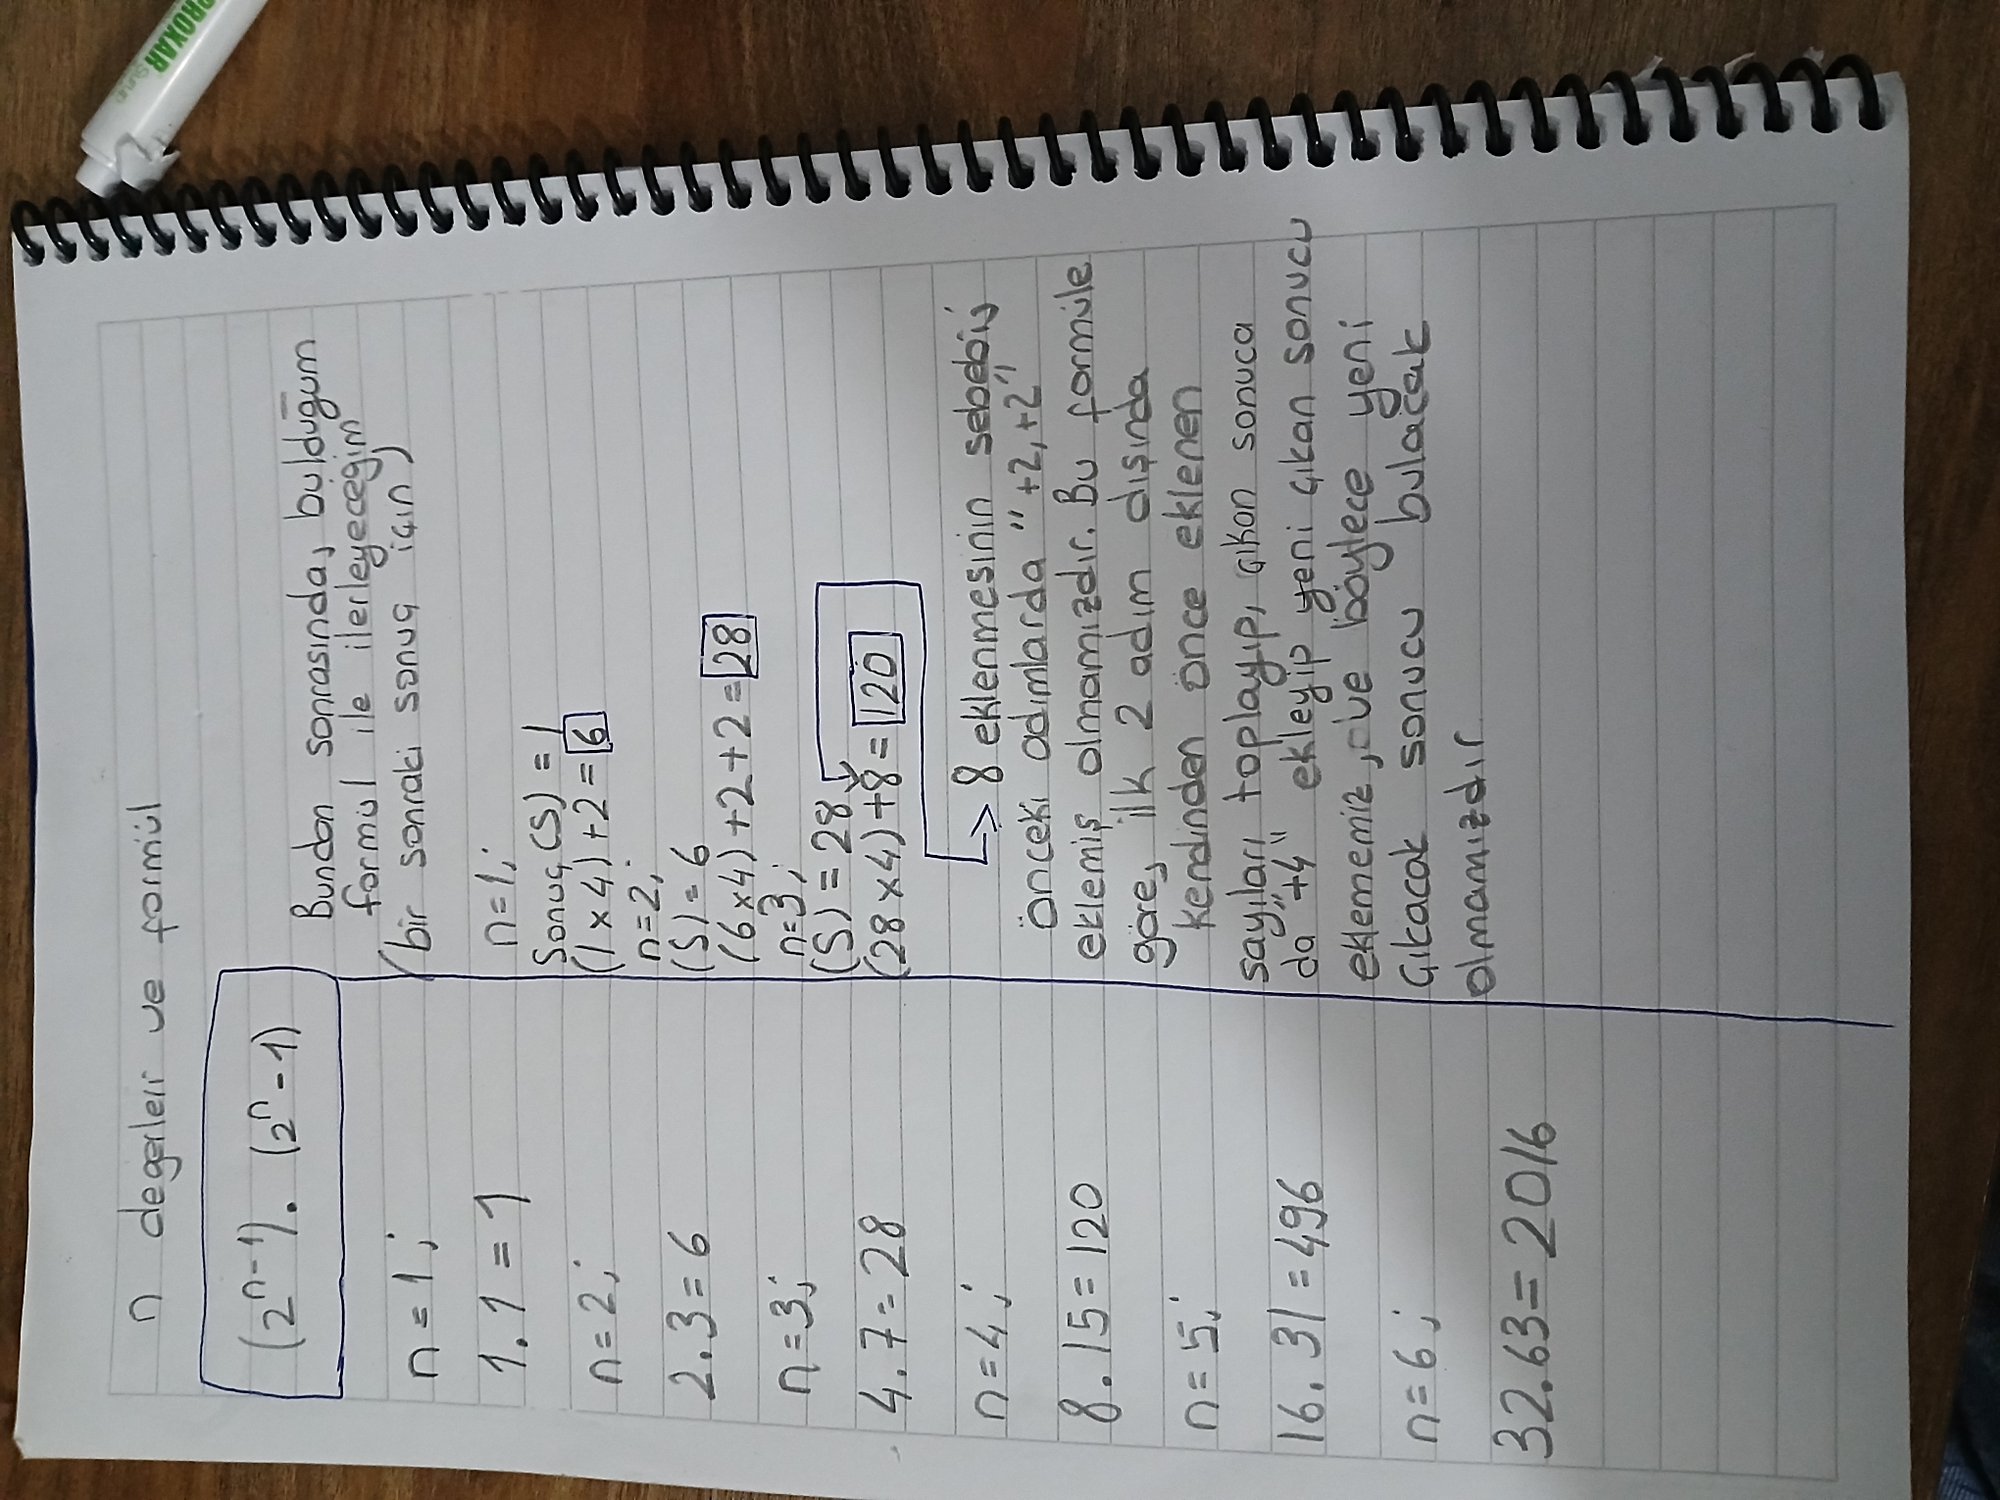 PROXAR
n değerleri ve formül
(2ⁿ⁻¹). (2ⁿ-1)
n=1;
1.1=1
n=2;
2.3=6
n=3;
4.7=28
n=4;
8.15=120
n=5;
16.31=496
n=6;
32.63=2016
Bundan sonrasında, bulduğum
formül ile ilerleyeceğim
(bir sonraki sonuç için)
n=1;
Sonuç(S)=1
(1×4)+2=6
n=2;
(S)=6
(6×4)+2+2=28
n=3;
(S)=28
(28×4)+8=120
→ 8 eklenmesinin sebebi;
önceki adımlarda "+2,+2"
eklemiş olmamızdır. Bu formüle
göre, ilk 2 adım dışında
kendinden önce eklenen
sayıları toplayıp, çıkan sonuca
da "+4" ekleyip yeni çıkan sonucu
eklememiz, ve böylece yeni
çıkacak sonucu bulacak
olmamızdır